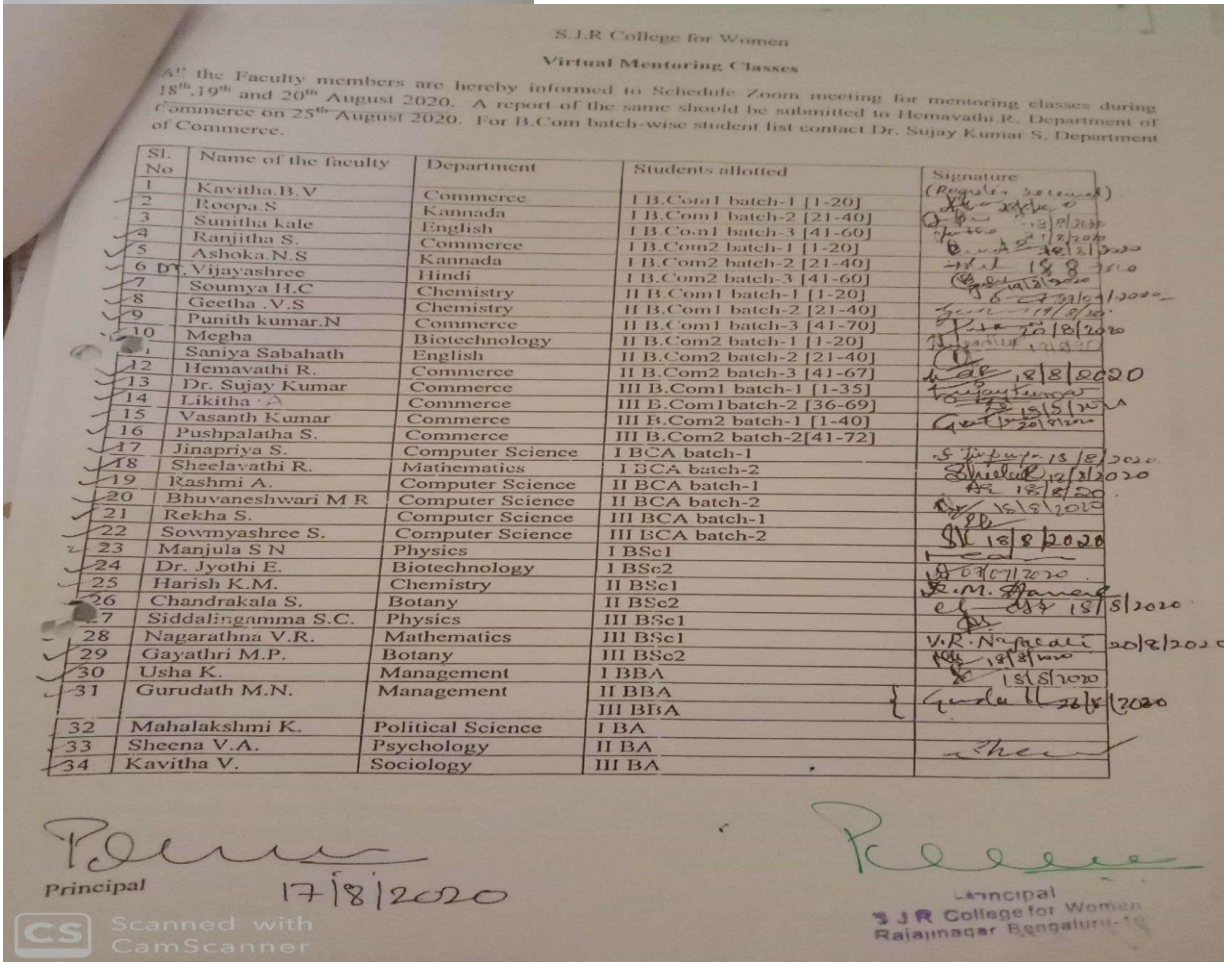 S.J.R College for Women
Virtual Mentoring Classes
All the Faculty members are hereby informed to Schedule Zoom meeting for mentoring classes during
18th,19th and 20th August 2020. A report of the same should be submitted to Hemavathi.R. Department of
Commerce on 25th August 2020. For B.Com batch-wise student list contact Dr. Sujay Kumar S. Department
of Commerce.
Sl. No Name of the faculty Department Students allotted Signature
1 Kavitha.B.V Commerce I B.Com1 batch-1 [1-20]
2 Roopa.S Kannada I B.Com1 batch-2 [21-40]
3 Sunitha kale English I B.Com1 batch-3 [41-60]
4 Ranjitha S. Commerce I B.Com2 batch-1 [1-20]
5 Ashoka.N.S Kannada I B.Com2 batch-2 [21-40]
6 Dr. Vijayashree Hindi I B.Com2 batch-3 [41-60]
7 Soumya H.C Chemistry II B.Com1 batch-1 [1-20]
8 Geetha .V.S Chemistry II B.Com1 batch-2 [21-40]
9 Punith kumar.N Commerce II B.Com1 batch-3 [41-70] 20/8/2020
10 Megha Biotechnology II B.Com2 batch-1 [1-20]
Saniya Sabahath English II B.Com2 batch-2 [21-40]
12 Hemavathi R. Commerce II B.Com2 batch-3 [41-67] 18/8/2020
13 Dr. Sujay Kumar Commerce III B.Com1 batch-1 [1-35]
14 Likitha A Commerce III B.Com1batch-2 [36-69]
15 Vasanth Kumar Commerce III B.Com2 batch-1 [1-40] 20/8/2020
16 Pushpalatha S. Commerce III B.Com2 batch-2[41-72]
17 Jinapriya S. Computer Science I BCA batch-1 18/8/2020
18 Sheelavathi R. Mathematics I BCA batch-2
19 Rashmi A. Computer Science II BCA batch-1 18/8/20
20 Bhuvaneshwari M R Computer Science II BCA batch-2 18/8/2020
21 Rekha S. Computer Science III BCA batch-1
22 Sowmyashree S. Computer Science III BCA batch-2 18/8/2020
23 Manjula S N Physics I BSc1
24 Dr. Jyothi E. Biotechnology I BSc2 07/09/2020
25 Harish K.M. Chemistry II BSc1
26 Chandrakala S. Botany II BSc2 18/8/2020
27 Siddalingamma S.C. Physics III BSc1
28 Nagarathna V.R. Mathematics III BSc1 20/8/2020
29 Gayathri M.P. Botany III BSc2 18/8/2020
30 Usha K. Management I BBA 18/8/2020
31 Gurudath M.N. Management II BBA
III BBA
32 Mahalakshmi K. Political Science I BA
33 Sheena V.A. Psychology II BA
34 Kavitha V. Sociology III BA
Principal 17/8/2020
Principal
S J R College for Women
Rajajinagar Bengaluru-10
CS Scanned with
CamScanner